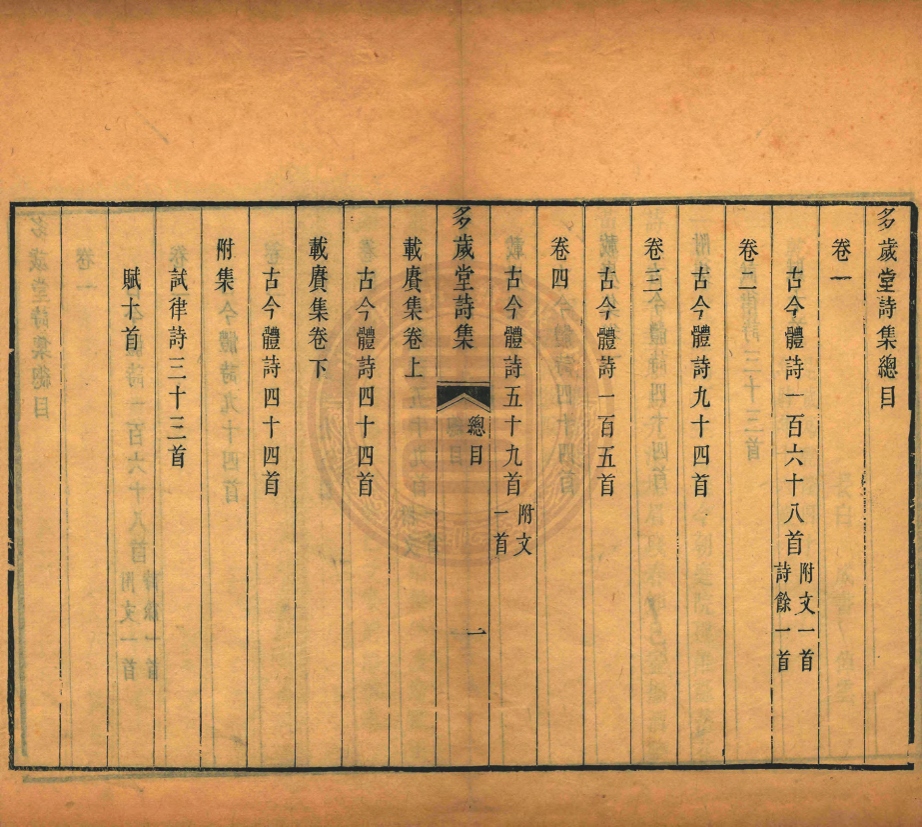 多歲堂詩集總目
卷一
古今體詩一百六十八首附文一首
詩餘一首
卷二
古今體詩九十四首
卷三
古今體詩一百五首
卷四
古今體詩五十九首附文
一首
多歲堂詩集
總目
一
載賡集卷上
古今體詩四十四首
載賡集卷下
古今體詩四十四首
附集
試律詩三十三首
賦十首